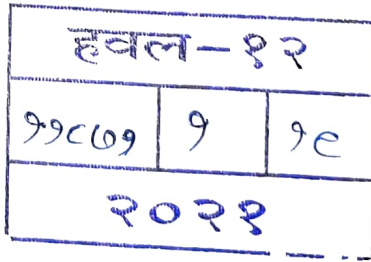 हवल-१२
११८७१ १ १९
२०२१